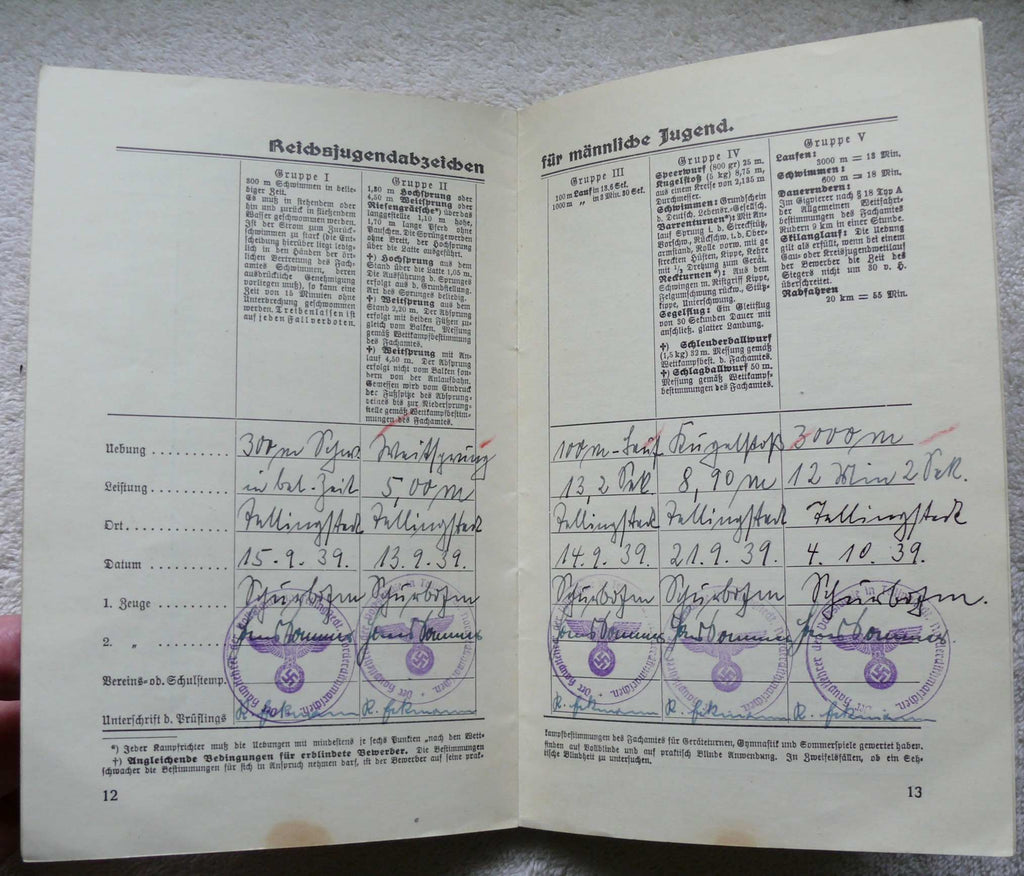 Reichsjugendabzeichen
Gruppe I
300 m Schwimmen in belie-
biger Zeit.
Es muß in stehendem oder
hin und zurück in fließendem
Wasser geschwommen werden.
Ist der Strom zum Zurück-
schwimmen zu stark (die Ent-
scheidung hierüber liegt ledig-
lich in den Händen der ört-
lichen Vertretung des Fach-
amtes Schwimmen, deren
ausdrückliche Genehmigung
vorliegen muß), so kann eine
Zeit von 12 Minuten ohne
Unterbrechung geschwommen
werden. Treibenlassen ist
auf jeden Fall verboten.
Gruppe II
1,30 m Hochsprung oder
4,50 m Weitsprung oder
Riesengrätsche*) über das
langgestellte 1,10 m hohe,
1,70 m lange Pferd ohne
Pauschen. Die Sprünge werden
ohne Brett, der Hochsprung
über die Latte ausgeführt.
†) Hochsprung aus dem
Stand über die Latte 1,05 m.
Die Ausführung d. Sprunges
erfolgt aus d. Grundstellung.
Art des Sprunges beliebig.
†) Weitsprung aus dem
Stand 2,20 m. Der Absprung
erfolgt mit beiden Füßen zu-
gleich vom Balken. Messung
gemäß Wettkampfbestimmung
des Fachamtes.
†) Weitsprung mit An-
lauf 4,50 m. Der Absprung
erfolgt nicht vom Balken son-
dern von der Anlaufbahn.
Gemessen wird vom Eindruck
der Fußspitze des Absprung-
beines bis zur Niedersprung-
stelle gemäß Wettkampfbestim-
mungen des Fachamtes.
Uebung 300 m Schw. Weitsprung
Leistung in bel. Zeit 5,00 m
Ort Tellingstedt Tellingstedt
Datum 15. 9. 39. 13. 9. 39.
1. Zeuge Schurbohm Schurbohm
2. „ Hans Dammer Hans Dammer
Vereins- od. Schulstemp.
Unterschrift d. Prüflings R. Eckmann R. Eckmann
*) Jeder Kampfrichter muß die Uebungen mit mindestens je sechs Punkten „nach den Wett-
†) Angleichende Bedingungen für erblindete Bewerber. Die Bestimmungen
schwacher die Bestimmungen für sich in Anspruch nehmen darf, ist der Bewerber auf seine prak-
12
für männliche Jugend.
Gruppe III
100 m Lauf in 13,6 Sek.
1000 m „ in 3 Min. 30 Sek.
Gruppe IV
Speerwurf (600 gr) 25 m.
Kugelstoß (5 kg) 8,75 m,
aus einem Kreise von 2,135 m
Durchmesser.
Schwimmen: Grundschein
d. Deutsch. Lebensr.-Gesellsch.
Barrenturnen*): Mit An-
lauf Sprung i. d. Streckstütz,
Vorschw., Rückschw. i. d. Ober-
armstand, Rolle vorw. mit ge-
streckten Hüften, Kippe, Kehre
mit ½ Drehung zum Gerät.
Reckturnen*): Aus dem
Schwingen m. Ristgriff Kippe,
Felgumschwung rückw., Sitz-
kippe, Unterschwung.
Segelflug: Ein Gleitflug
von 30 Sekunden Dauer mit
anschließ. glatter Landung.
†) Schleuderballwurf
(1,5 kg) 32 m. Messung gemäß
Wettkampfbest. d. Fachamtes.
†) Schlagballwurf 50 m.
Messung gemäß Wettkampf-
bestimmungen des Fachamtes.
Gruppe V
Laufen:
3000 m = 13 Min.
Schwimmen:
600 m = 18 Min.
Dauerrudern:
Im Gigvierer nach § 18 Typ A
der Allgemeinen Wettfahrt-
bestimmungen des Fachamtes
Rudern 9 km in einer Stunde.
Skilanglauf: Die Uebung
gilt als erfüllt, wenn bei einem
Gau- oder Kreisjugendwettlauf
der Bewerber die Zeit des
Siegers nicht um 30 v. H.
überschreitet.
Radfahren
20 km = 55 Min.
100 m-Lauf Kugelstoß 3000 m
13,2 Sek. 8,90 m 12 Min 2 Sek.
Tellingstedt Tellingstedt Tellingstedt
14. 9. 39. 21. 9. 39. 4. 10. 39.
Schurbohm Schurbohm Schurbohm.
Hans Dammer Hans Dammer Hans Dammer
R. Eckmann R. Eckmann R. Eckmann
kampfbestimmungen des Fachamtes für Geräteturnen, Gymnastik und Sommerspiele gewertet haben.
finden auf Vollblinde und auf praktisch Blinde Anwendung. In Zweifelsfällen, ob ein Seh-
tische Blindheit zu untersuchen.
13